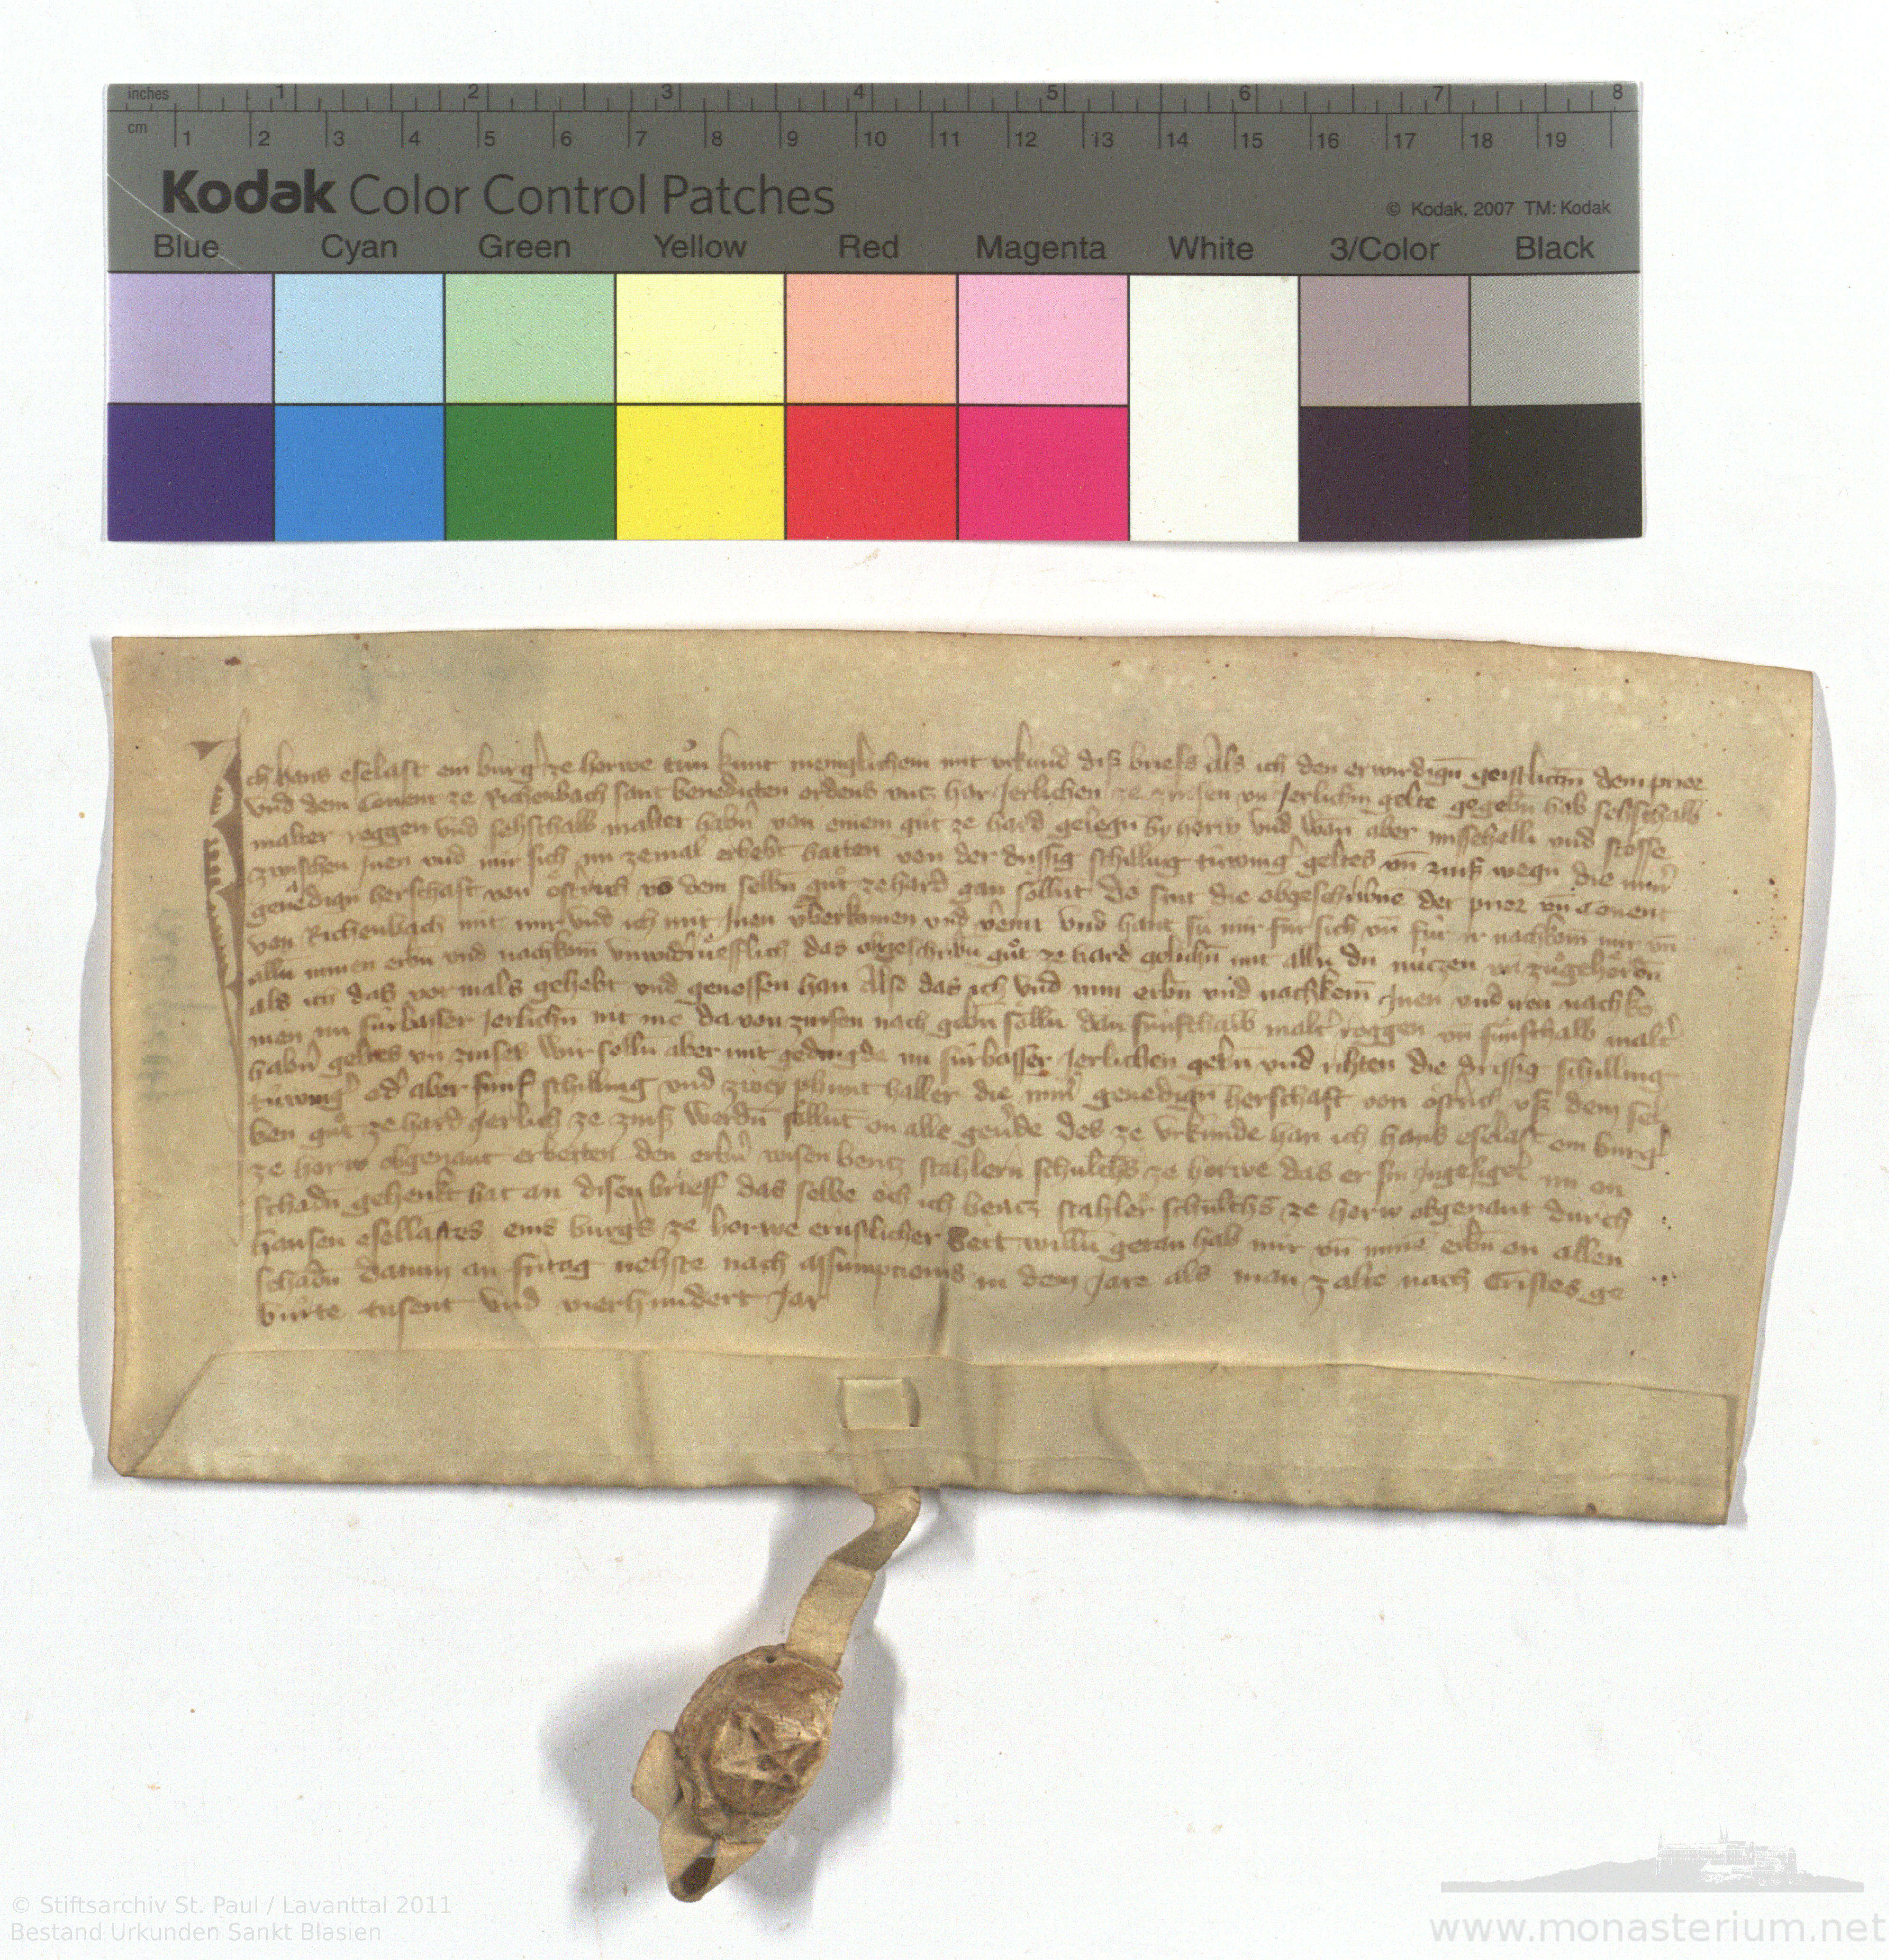 inches 1 2 3 4 5 6 7 8
cm 1 2 3 4 5 6 7 8 9 10 11 12 13 14 15 16 17 18 19
Kodak Color Control Patches
© Kodak, 2007 TM: Kodak
Blue Cyan Green Yellow Red Magenta White 3/Color Black
Ich hans eselast ein burgˀ ze horwe tuͦn kunt menglichem mit vrkund diß briefs Als ich den erwirdign̄ geistlichn̄ dem prior
vnd dem Conent ze Richenbach sant benedicten ordens vncz har Jerlichen ze zinsen vn̄ Jerlichm gelte gegebn̄ hab sehschalb
malter roggen vnd sehschalb malter habn̄ von einem guͦt ze hard gelegn̄ by horw vnd wan̄ aber misschelli vnd stoͤsse
zwischen Jnen vnd mir sich nu zemal erhebt hatten von der drissig schilling tuͤwingˀ geltes vn̄ zinß wegn̄ die minˀ
genedign̄ herschaft von oͤstrich vō dem selbn̄ guͦt ze hard gan soͤllint do sint die obgeschribnē der prior vn̄ Conent
von Richenbach mit mir vnd ich mit Jnen vͤberkomen vnd vˀeint vnd hant sú mir fúr sich vn̄ fúr ir nachkom̄ mir vn̄
alln̄ minen erbn̄ vnd nachkom̄ vnwidˀruͤefflich das obgeschribn̄ guͦt ze hard gelihn̄ mit alln̄ dn̄ núczen vn̄ zuͦgehoͤrdn̄
als ich das vormals gehebt vnd genossen han Also das ich vnd min erbn̄ vnd nachkom̄ Jnen vnd iren nachko
men nu fúrbasser Jerlichn̄ nit me da von zinsen noch gebn̄ soͤlln̄ dan fúnfthalb maltˀ roggen vn̄ fúnfthalb maltˀ
habn̄ geltes vn̄ zinses Wir solln̄ aber mit gedingde nu fúrbasser Jerlichen gebn̄ vnd rihten die drissig schilling
túwingˀ odˀ aber fúnf schilling vnd zwey phunt haller die minˀ genedign̄ herschaft von oͤstrich vß dem sel
ben guͦt ze hard Jerlich ze zinß werdn̄ soͤllint on alle geuˀde des ze vrkúnde han ich hans eselast ein burgˀ
ze horw obgenant erbetten den erbn̄ wisen bentz stahlern schulthˀs ze horwe das er sin Jngesigel im on
schadn̄ gehenkt hat an disen brieff das selbe och ich bencz stahler schulthˀs ze horw obgenant durch
hansen esellastes eins burgˀs ze horwe ernstlicher bett willn̄ getan hab mir vn̄ minē erbn̄ on allen
schadn̄ datum an fritag nehste nach assumpcionis in dem Jare als man zalte nach Cristes ge
burte tusent vnd vierhundert Jar
© Stiftsarchiv St. Paul / Lavanttal 2011
Bestand Urkunden Sankt Blasien
www.monasterium.net